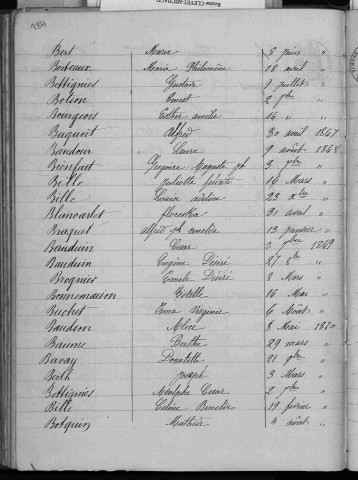 184
Bert Maria 3 juin "
Bordeaux Maria Philomène 18 avril "
Bottignies Gustave 1 juillet "
Bolion Ernest 2 pbre "
Bourgeois Esther amélie 14 " "
Buquoit Alfred 30 avril 1867
Baudour Laure 9 août 1868
Bienfait Grégoire Auguste jh 9 pbre "
Belle Juliette 16 Mars "
Bille Louise 23 xbre "
Blancarlet florestia 31 avril "
Braquet alfred jh cornelie 13 janvier "
Bauduin Cesar 2 pbre 1869
Bauduin Eugène Désiré 27 8bre "
Brognier Emile Désiré 8 Mars "
Bonnemaison Estelle 16 Mai "
Buchet Irma Virginie 6 Août "
Baudson Alice 8 Mai 1870
Baume Berthe 29 mars "
Bavay Donatelle 21 pbre "
Berth Joseph 3 Mars "
Bottignies Adolphe Cesar 2 pbre "
Bille Celine Benoite 19 fevrier "
Botquin Mathieu 4 août "